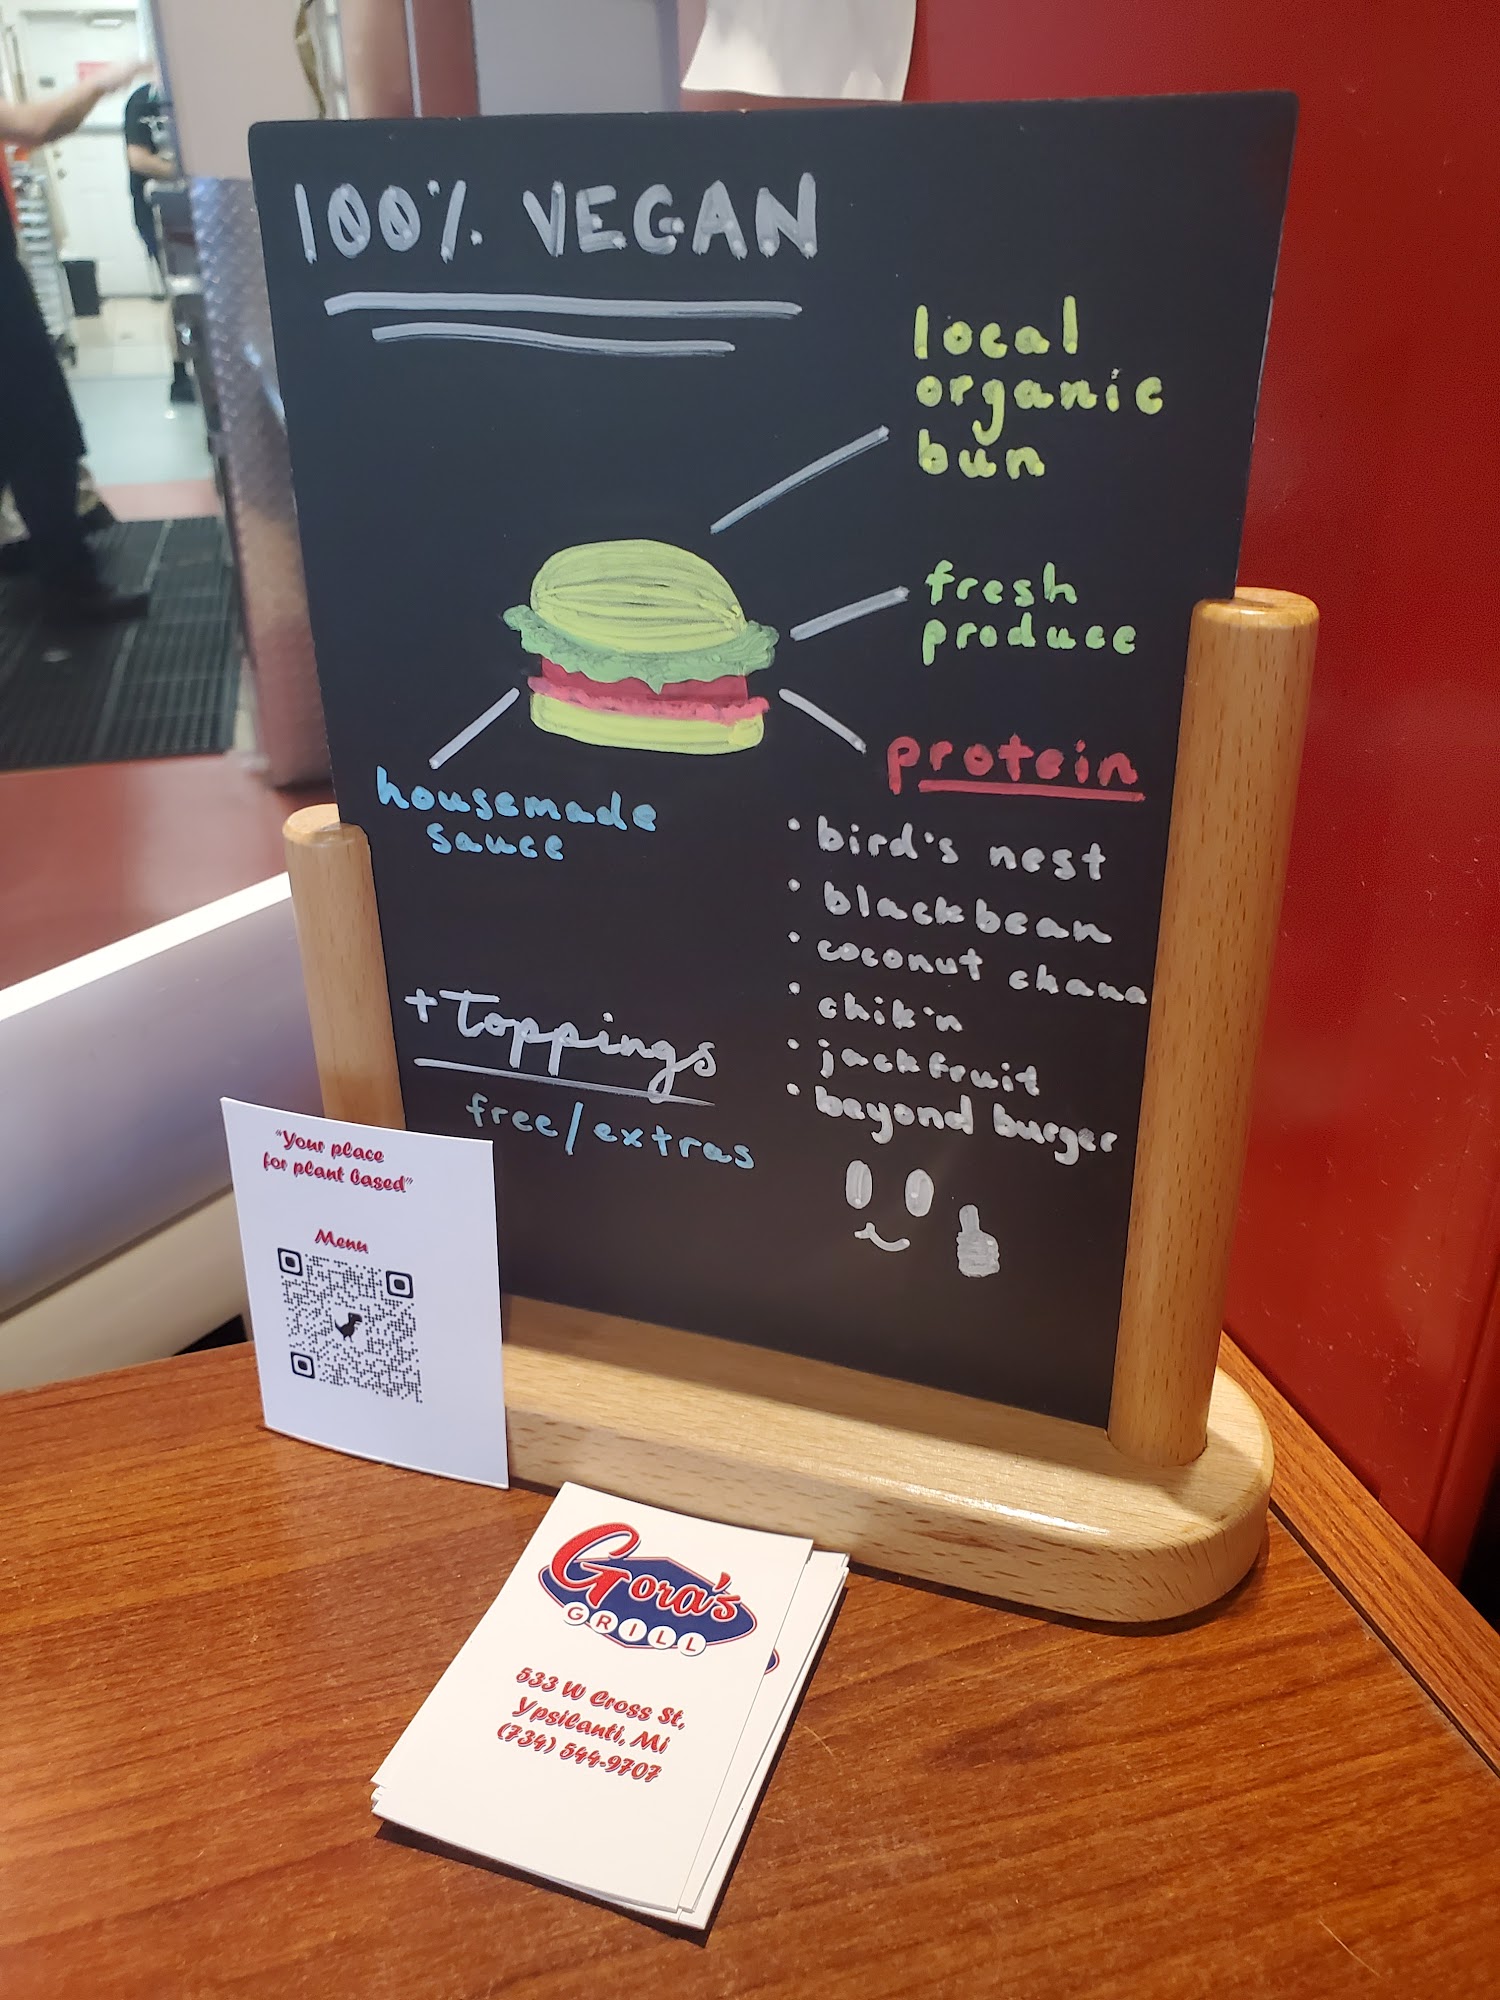 100% VEGAN
local
organic
bun
fresh
produce
protein
• bird's nest
• blackbean
• coconut chana
• chik'n
• jackfruit
• beyond burger
housemade
sauce
+ Toppings
free/extras
"Your place
for plant based"
Menu
Gora's
GRILL
533 W Cross St,
Ypsilanti, Mi
(734) 544-9707